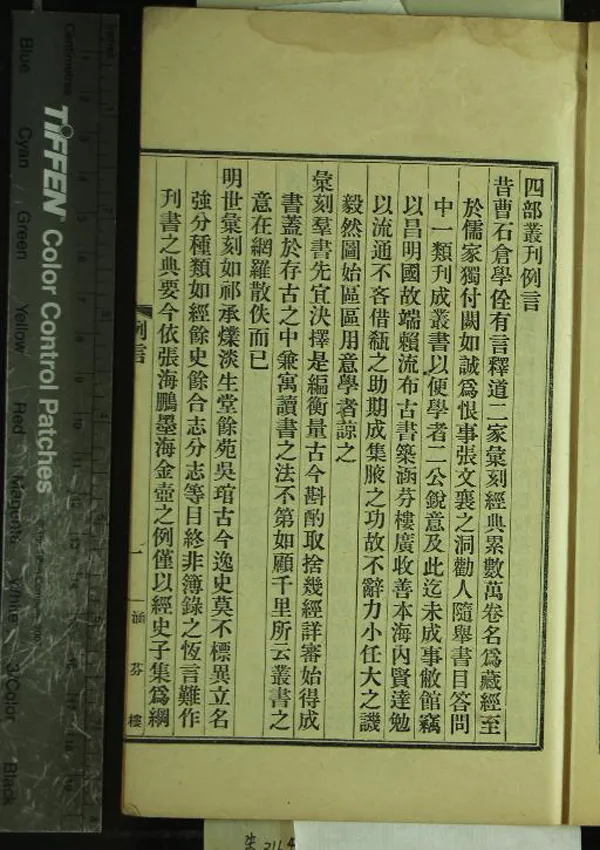 四部叢刊例言
昔曹石倉學佺有言釋道二家彙刻經典累數萬卷名爲藏經至
於儒家獨付闕如誠爲恨事張文襄之洞勸人隨舉書目答問
中一類刊成叢書以便學者二公銳意及此迄未成事敝館竊
以昌明國故端賴流布古書築涵芬樓廣收善本海內賢達勉
以流通不吝借瓻之助期成集腋之功故不辭力小任大之譏
毅然圖始區區用意學者諒之
彙刻羣書先宜決擇是編衡量古今斟酌取捨幾經詳審始得成
書蓋於存古之中兼寓讀書之法不第如顧千里所云叢書之
意在網羅散佚而已
明世彙刻如祁承㸁淡生堂餘苑吳琯古今逸史莫不標異立名
強分種類如經餘史餘合志分志等目終非簿錄之恆言難作
刊書之典要今依張海鵬墨海金壺之例僅以經史子集爲綱
例言
一
涵芬樓
TIFFEN Color Control Patches
Centimetres
Blue
Cyan
Green
Yellow
Red
Magenta
White
3/Color
Black